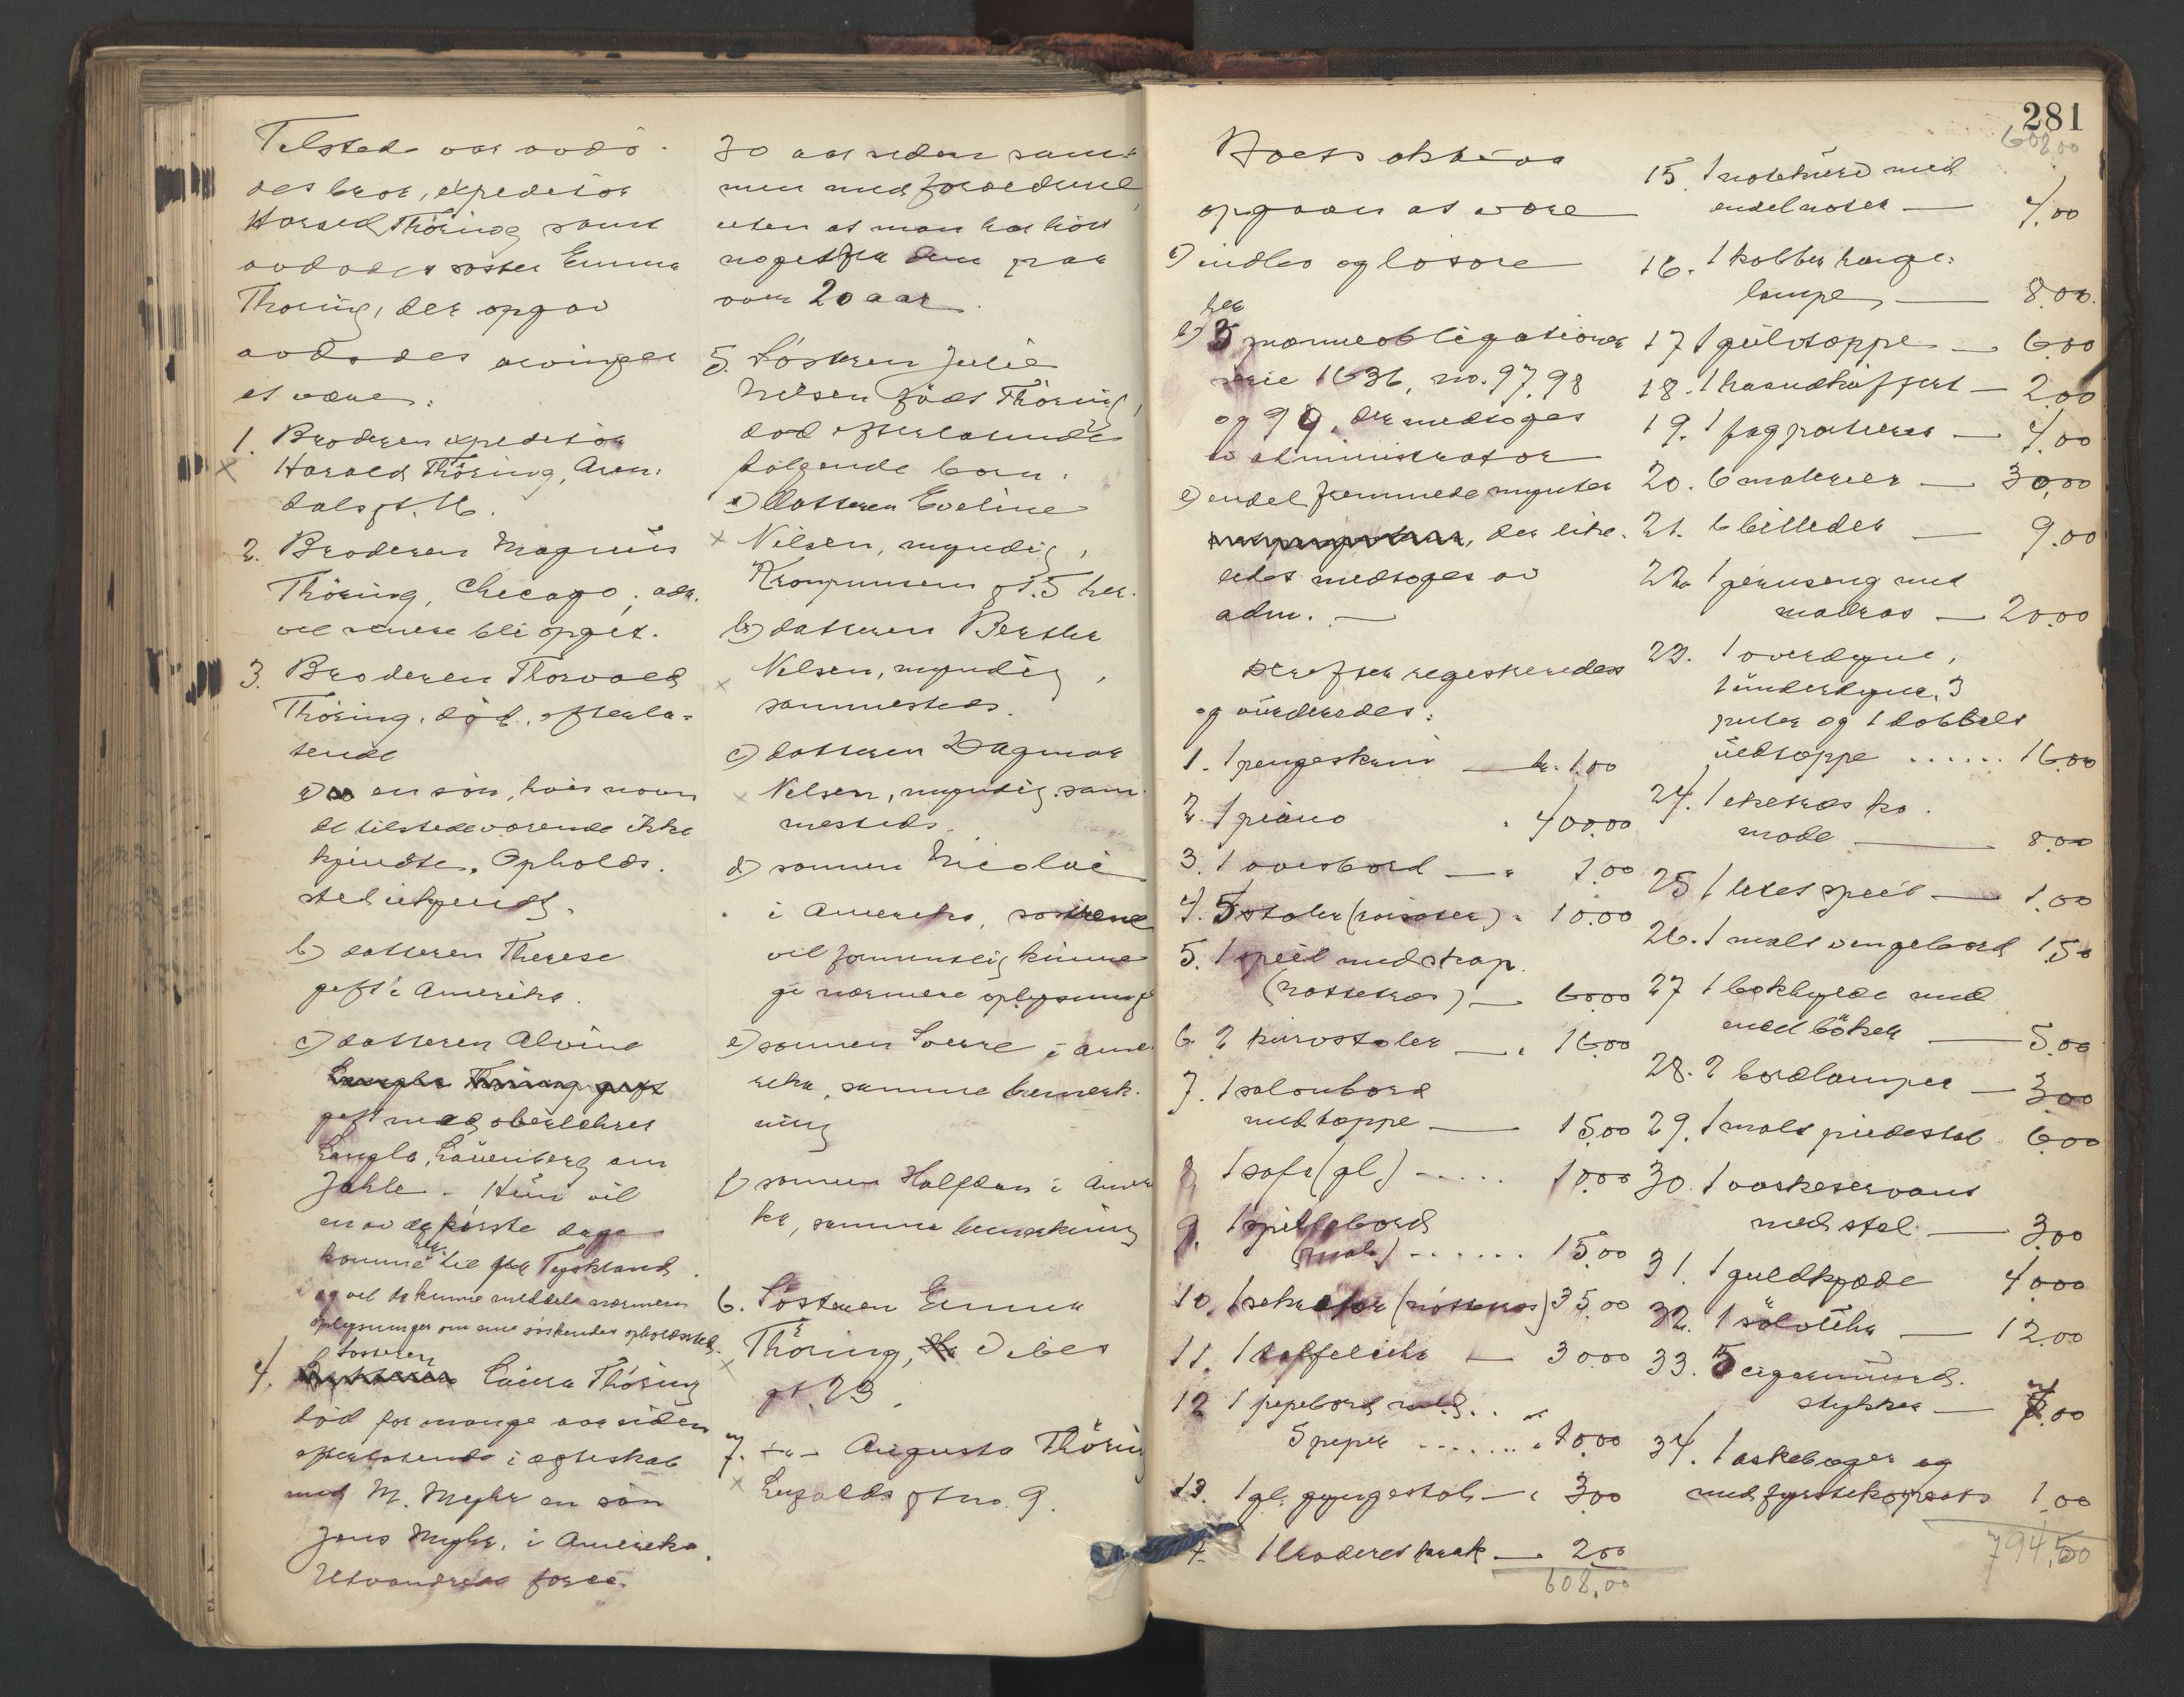 Tilstede var avdö-
des bror, expeditör
Harald Thöring samt
avdödes söster Emma
Thöring, der opgav
avdödes arvinger
at være:
1. Broderen expeditör
x Harald Thöring, Aren:
dalsgt. 16.
2. Broderen Magnus
Thöring, Chicago, adr.
vil senere bli opgit.
3. Broderen Thorvald
Thöring, död, efterla-
tende
a) en sön, hvis navn
de tilstedeværende ikke
kjendte. Opholds.
sted ukjendt.
b) datteren Therese
gift i Amerika.
c) datteren Alvine
gift med oberlehrer
Langlo, Lauenberg am
Jahle. Hun vil
en av de første dage
komme her til fra Tyskland
og vil da kunne meddele nærmere
oplysninger om sine söskendes opholdssted.
4. Søsteren Laura Thöring
död for mange aar siden
efterlatende i egteskab
med M. Myhr en sön
Jens Myhr, i Amerika.
Utvandret for ca.
30 aar siden sam-
men med forældrene,
uten at man har hört
noget fra dem paa
over 20 aar.
5. Söstren Julie
Nilsen födt Thöring,
död efterlatende
følgende barn:
a) Datteren Eveline
x Nilsen, myndig,
Kronprinsens gt. 5 her.
b) datteren Berthe
x Nilsen, myndig,
sammesteds.
c) datteren Dagmar
x Nilsen, myndig, sam-
mesteds.
d) sønnen Nicolai
i Amerika, søstrene
vil formentlig kunne
gi nærmere oplysning
e) sønnen Sverre i Ame
rika, samme bemerk-
ning
f) sønnen Halfdan i Ameri
ka, samme bemerkning
6. Söstren Emma
x Thöring, Vibes
gt. 23.
7. -"- Augusta Thöring
x Lyholts gt no. 9.
281
608,00
Boets aktiva
opgaves at være
a) indbo og lösöre
her
b) 3 præmieobligationer
serie 1636, no. 97, 98
og 99, der medtoges
av administrator
c) endel fremmede mynter
, der like-
ledes medtoges av
adm. —
Derefter registreredes
og vurderedes:
1. 1 pengeskrin — kr. 1.00
2. 1 piano " 400.00
3. 1 avisbord — " 1.00
4. 5 stoler (roisoter) " 10.00
5. 1 speil med skap
(nøttetræ) — 60.00
6. 2 kurvstoler — " 16.00
7. 1 salonbord
med tæppe — 15.00
8. 1 sofa (gl.) ..... 10.00
9. 1 spillebord
(malt) ...... 15.00
10. 1 sekretær (nöttetræ) 35.00
11. 1 taffeluhr — 30.00
12 1 pipebord med
5 piper ....... " 10.00
13. 1 gl. gyngestol — " 3.00
14. 1 broderet krak — 2.00
608,00
15. 1 notehürd med
endel noter — 4.00
16. 1 kobber hænge:
lampe — 8.00.
17 1 gulvtæppe — 6.00
18. 1 haandkuffert — 2.00
19. 1 fag portierer — 4.00
20. 6 malerier — 30.00
21. 6 billeder — 9.00
22. 1 jernseng med
madras — 20.00
23. 1 overdyne,
1 underdyne, 3
puter og 1 dobbelt
uldtæppe ...... 16.00
24. 1 eketræs ko-
mode — 8.00
25 1 litet speil — 1.00
26. 1 malt vingebord 1.50
27 1 bokhylde med
endel böker — 5.00
28. 2 bordlamper — 3.00
29. 1 malt piedestal 6.00
30. 1 vaskeservant
med stel — 3.00
31. 1 guldkjæde 40.00
32. 1 sölvuhr — 12.00
33. 5 cigarmund-
stykker — 7.00
34. 1 askebæger og
med fyrstikopsats 1.00
794,50